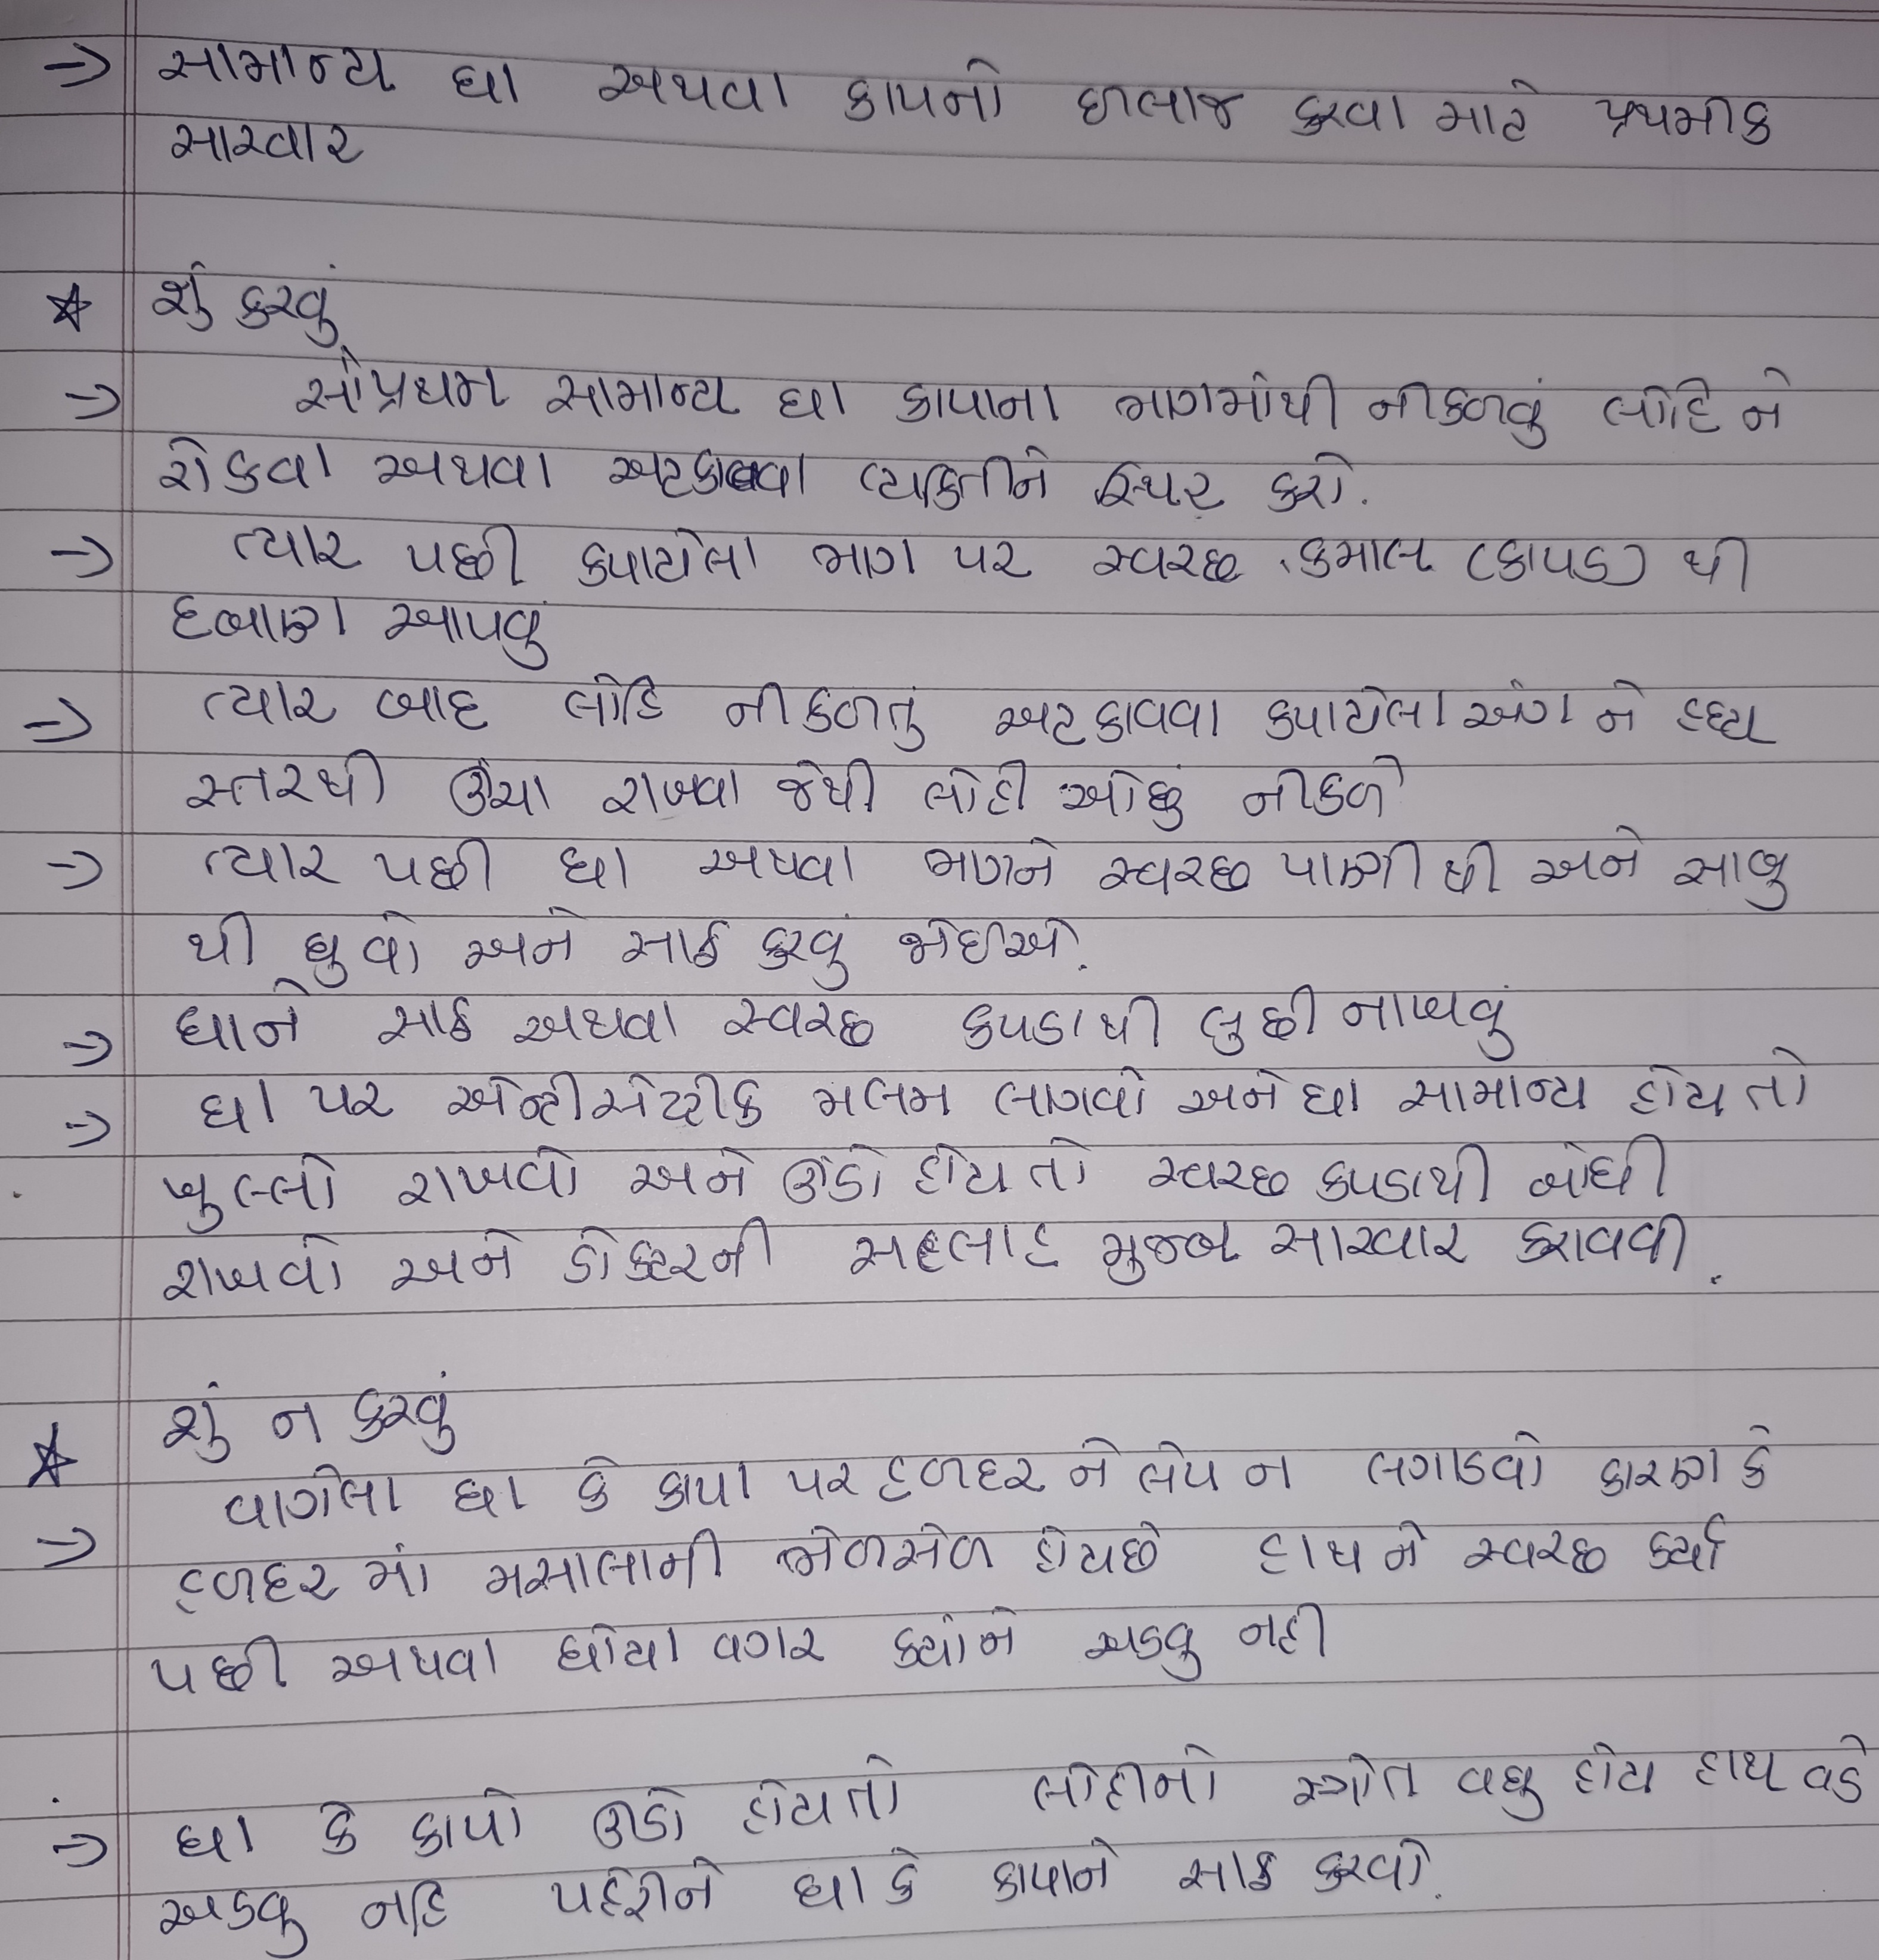 ⇒ સામાન્ય ઘા અથવા કાપનો ઈલાજ કરવા માટે પ્રથમીક
સારવાર
★ શું કરવું
⇒ સૌપ્રથમ સામાન્ય ઘા કાપાના ભાગમાંથી નીકળવું લોહિ ને
રોકવા અથવા અટકાવવા વ્યકિતીને સ્થિર કરો.
⇒ ત્યાર પછી કપાયેલા ભાગ પર સ્વચ્છ રૂમાલ (કાપડ) થી
દબાણ આપવું
⇒ ત્યાર બાદ લોહિ નીકળતું અટકાવવા કપાયેલા અંગ ને હ્દય
સ્તરથી ઊંચા રાખવા જેથી લોહી ઓછું નીકળે
⇒ ત્યાર પછી ઘા અથવા ભાગને સ્વચ્છ પાણી થી અને સાબુ
થી ધુવો અને સાફ કરવું જોઈએ.
⇒ ઘાને સાફ અથવા સ્વચ્છ કપડાથી લુછી નાખવું
⇒ ઘા પર એન્ટીસેપ્ટીક મલમ લાગવો અને ઘા સામાન્ય હોય તો
ખુલ્લો રાખવો અને ઊંડો હોય તો સ્વચ્છ કપડાથી બાંધી
રાખવો અને ડોક્ટરની સહલાહ મુજબ સારવાર કરાવવી.
★ શું ન કરવું
⇒ વાગેલા ઘા કે કાપા પર હળદર ને લેપ ન લગાડવો કારણ કે
હળદર માં મસાલાની ભેળસેળ હોયછે હાથ ને સ્વચ્છ કર્યા
પછી અથવા ધોયા વગર ક્યાંને અડવુ નહી
⇒ ઘા કે કાપો ઊંડો હોય તો લોહીનો સ્ત્રોત વધુ હોય હાથ વડે
અડવુ નહિ પહેરીને ઘા કે કાપાને સાફ કરવો.